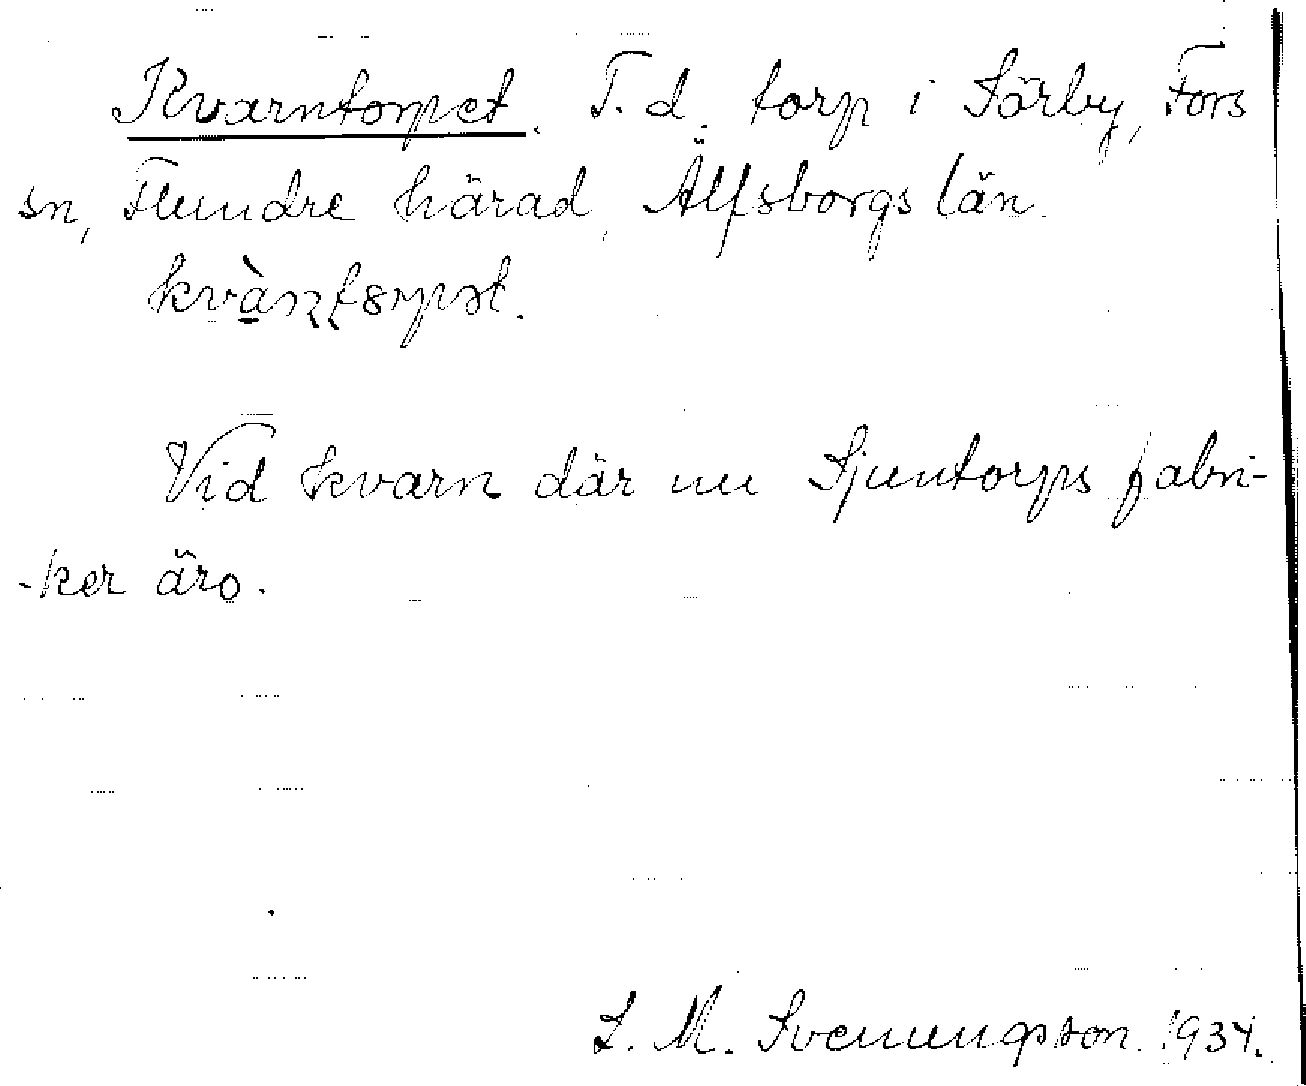 Kvarntorpet. T. d. torp i Sörby, Fors
sn, Flundre härad, Älfsborgs län.
Vid kvarn där nu Sjuntorps fabri-
-ker äro.
S. M. Svenungsson. 1934.